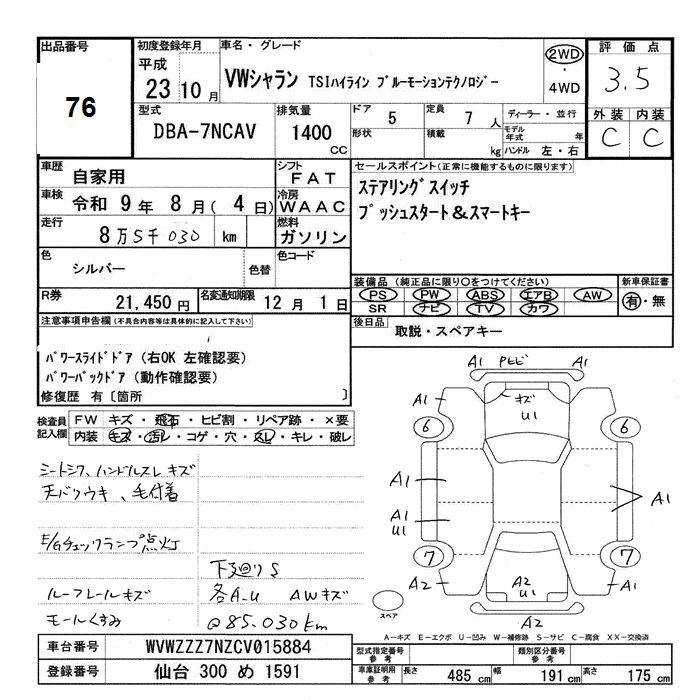 出品番号
76
初度登録年月
平成
23 10 月
車名・グレード
VWシャラン TSIハイライン ブルーモーションテクノロジー
2WD
・
4WD
評価点
3.5
外装 内装
C C
型式
DBA-7NCAV
排気量
1400
CC
ドア 5
定員 7 人
形状
積載
kg
ディーラー・並行
モデル
年式 年
ハンドル 左・右
車歴
自家用
シフト
FAT
車検
令和 9年 8月( 4日)
冷房
WAAC
走行
8万5千030 km
燃料
ガソリン
色
シルバー
色替
色コード
R券
21,450 円
名変通知期限
12 月 1 日
セールスポイント(正常に機能するものに限ります)
ステアリングスイッチ
プッシュスタート&スマートキー
装備品 (純正品に限り○をつけてください)
PS PW ABS エアB AW
SR ナビ TV カワ
新車保証書
有・無
後日品
取説・スペアキー
注意事項申告欄(不具合内容等は具体的に記入して下さい)
パワースライドドア (右OK 左確認要)
パワーバックドア (動作確認要)
修復歴 有〔箇所 〕
検査員
記入欄
FW キズ・飛石・ヒビ割・リペア跡・×要
内装 キズ・汚レ・コゲ・穴・スレ・キレ・破レ
シートシワ、ハンドルスレ キズ
天バリウキ、毛付着
E/Gチェックランプ点灯
下廻りS
ルーフレールキズ 各A.U AWキズ
モールくすみ @85.030km
A1 Pヒビ A1
A1 キズ U1 A1
6 6
A1 A1
A1
U1
7 7
A2 A2 U1 A1
A2
スペア
A−キズ E−エクボ U−凹み W−補修跡 S−サビ C−腐食 XX−交換済
車台番号
WVWZZZ7NZCV015884
登録番号
仙台 300 め 1591
型式指定番号
参考
類別区分番号
参考
車庫証明用
参考
長さ 485 cm
幅 191 cm
高さ 175 cm